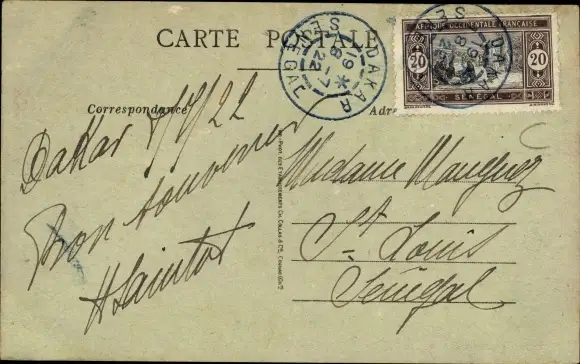 CARTE POSTALE
DAKAR
SENEGAL
19
8 - 7
22
AFRIQUE OCCIDENTALE FRANÇAISE
20 20
SÉNÉGAL
Correspondance
Adr
Dakar 8/7/22
Bon souvenir
Madame Manguez
St Louis
Sénégal